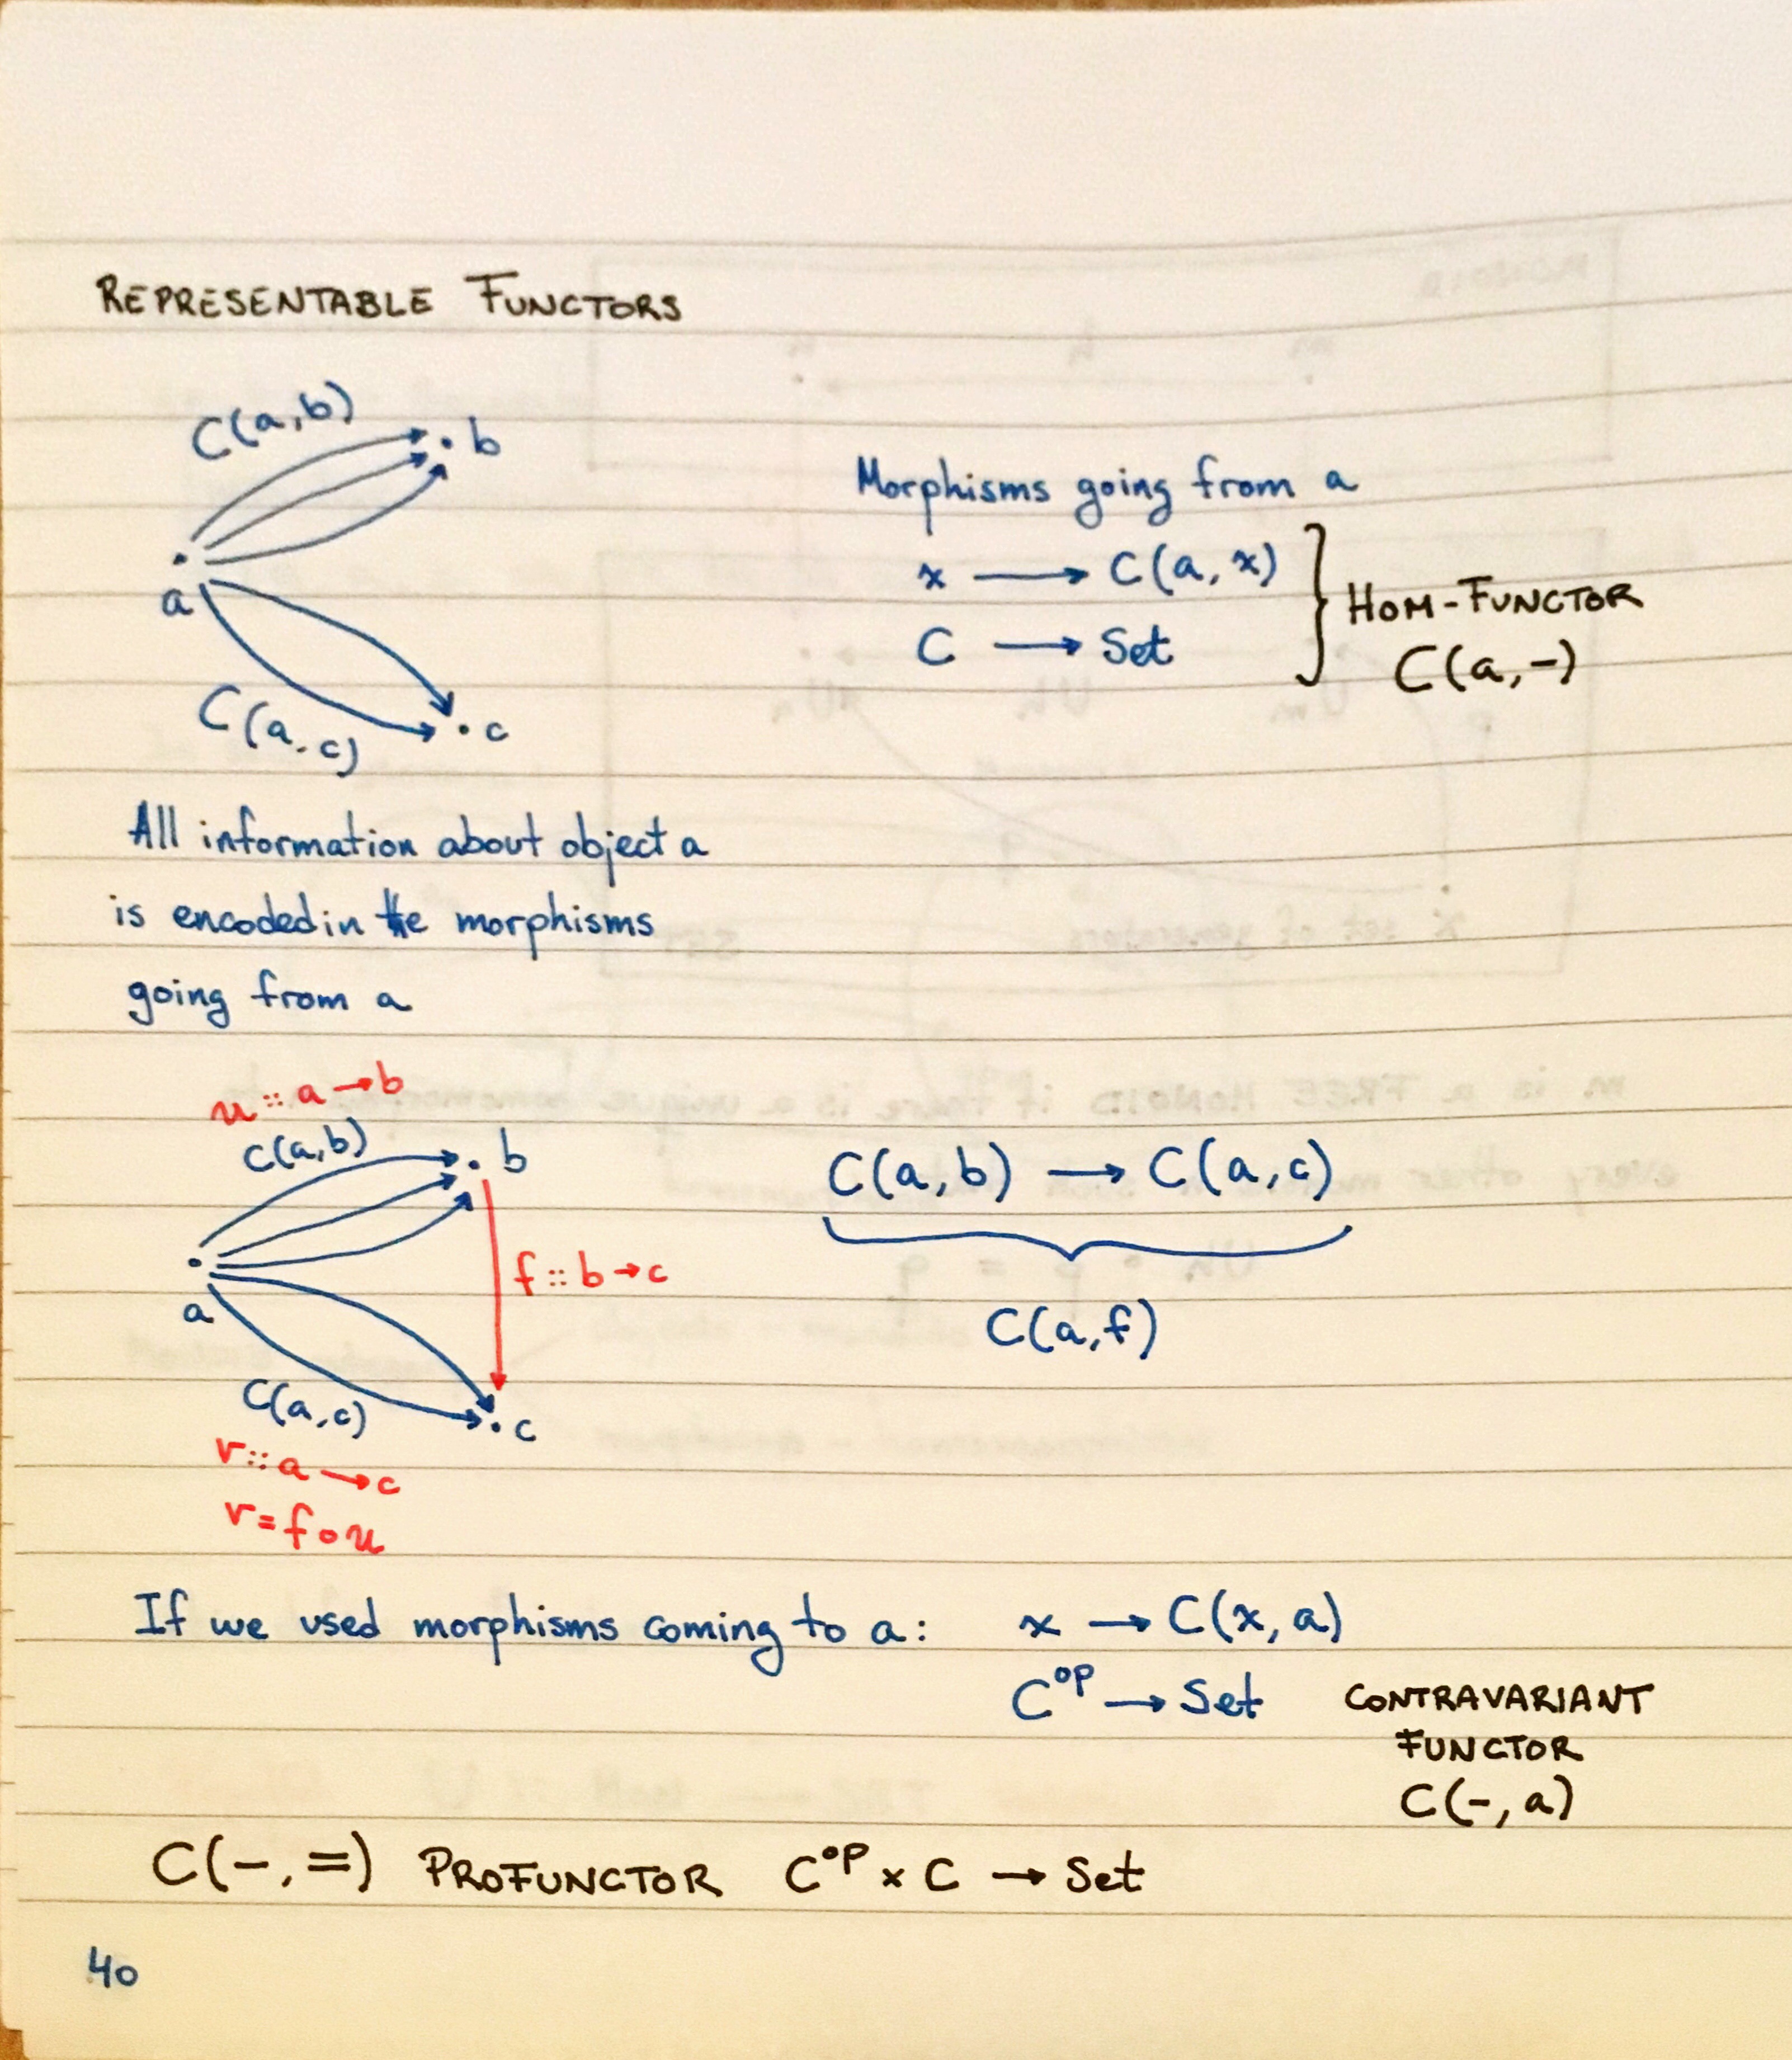 REPRESENTABLE FUNCTORS
C(a,b)
b
a
C(a,c)
c
Morphisms going from a
x → C(a, x)
C → Set
HOM-FUNCTOR
C(a,-)
All information about object a
is encoded in the morphisms
going from a
u :: a → b
C(a,b)
b
f :: b → c
a
C(a,c)
c
v :: a → c
v = f ∘ u
C(a,b) → C(a,c)
C(a,f)
If we used morphisms coming to a: x → C(x, a)
C^op → Set
CONTRAVARIANT
FUNCTOR
C(-, a)
C(-, =) PROFUNCTOR C^op × C → Set
40